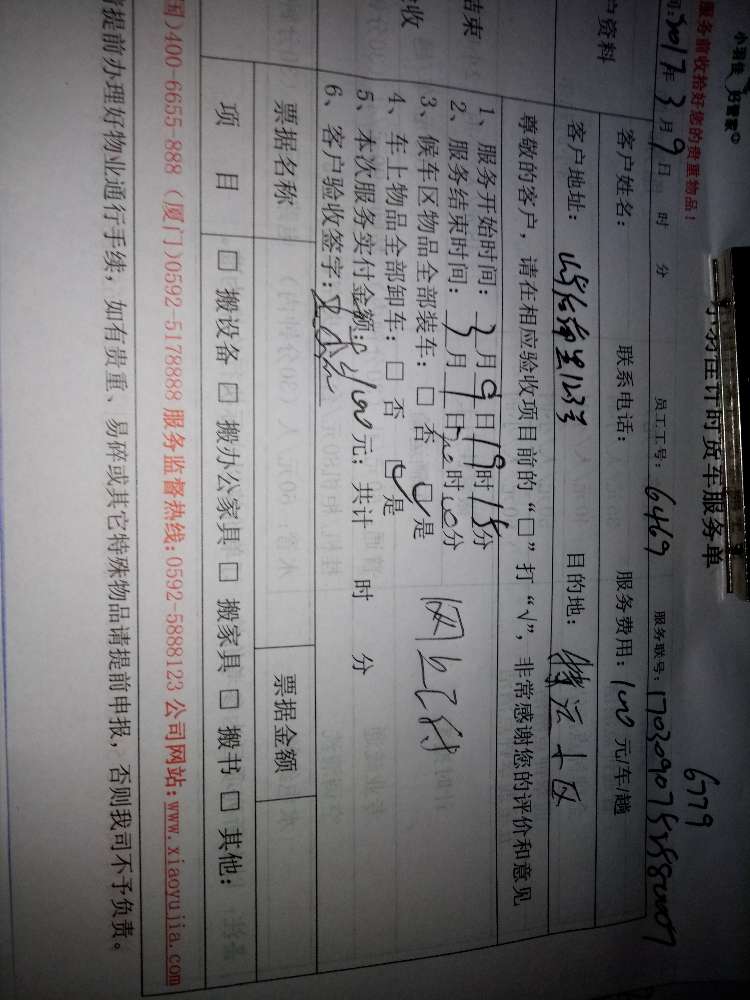 小羽佳 好管家
服务前收拾好您的贵重物品！
小羽佳计时货车服务单
6779
2017年3月9日 时 分 员工工号：6469 服务联号：
客户资料
客户姓名： 联系电话： 服务费用：100元/车/趟
客户地址： 目的地：
尊敬的客户，请在相应验收项目前的“□”打“√”，非常感谢您的评价和意见
结束
收
1、服务开始时间：3月9日19时15分
2、服务结束时间：3月9日20时10分
3、候车区物品全部装车：□ 否 □ 是
4、车上物品全部卸车：□ 否 □ 是
网上已付
5、本次服务实付金额：100元；共计 时 分
6、客户验收签字：
票据名称 票据金额
项 目 □ 搬设备 □ 搬办公家具 □ 搬家具 □ 搬书 □ 其他：
国)400-6655-888（厦门)0592-5178888 服务监督热线:0592-5888123 公司网站:www.xiaoyujia.com
提前办理好物业通行手续，如有贵重、易碎或其它特殊物品请提前申报，否则我司不予负责。